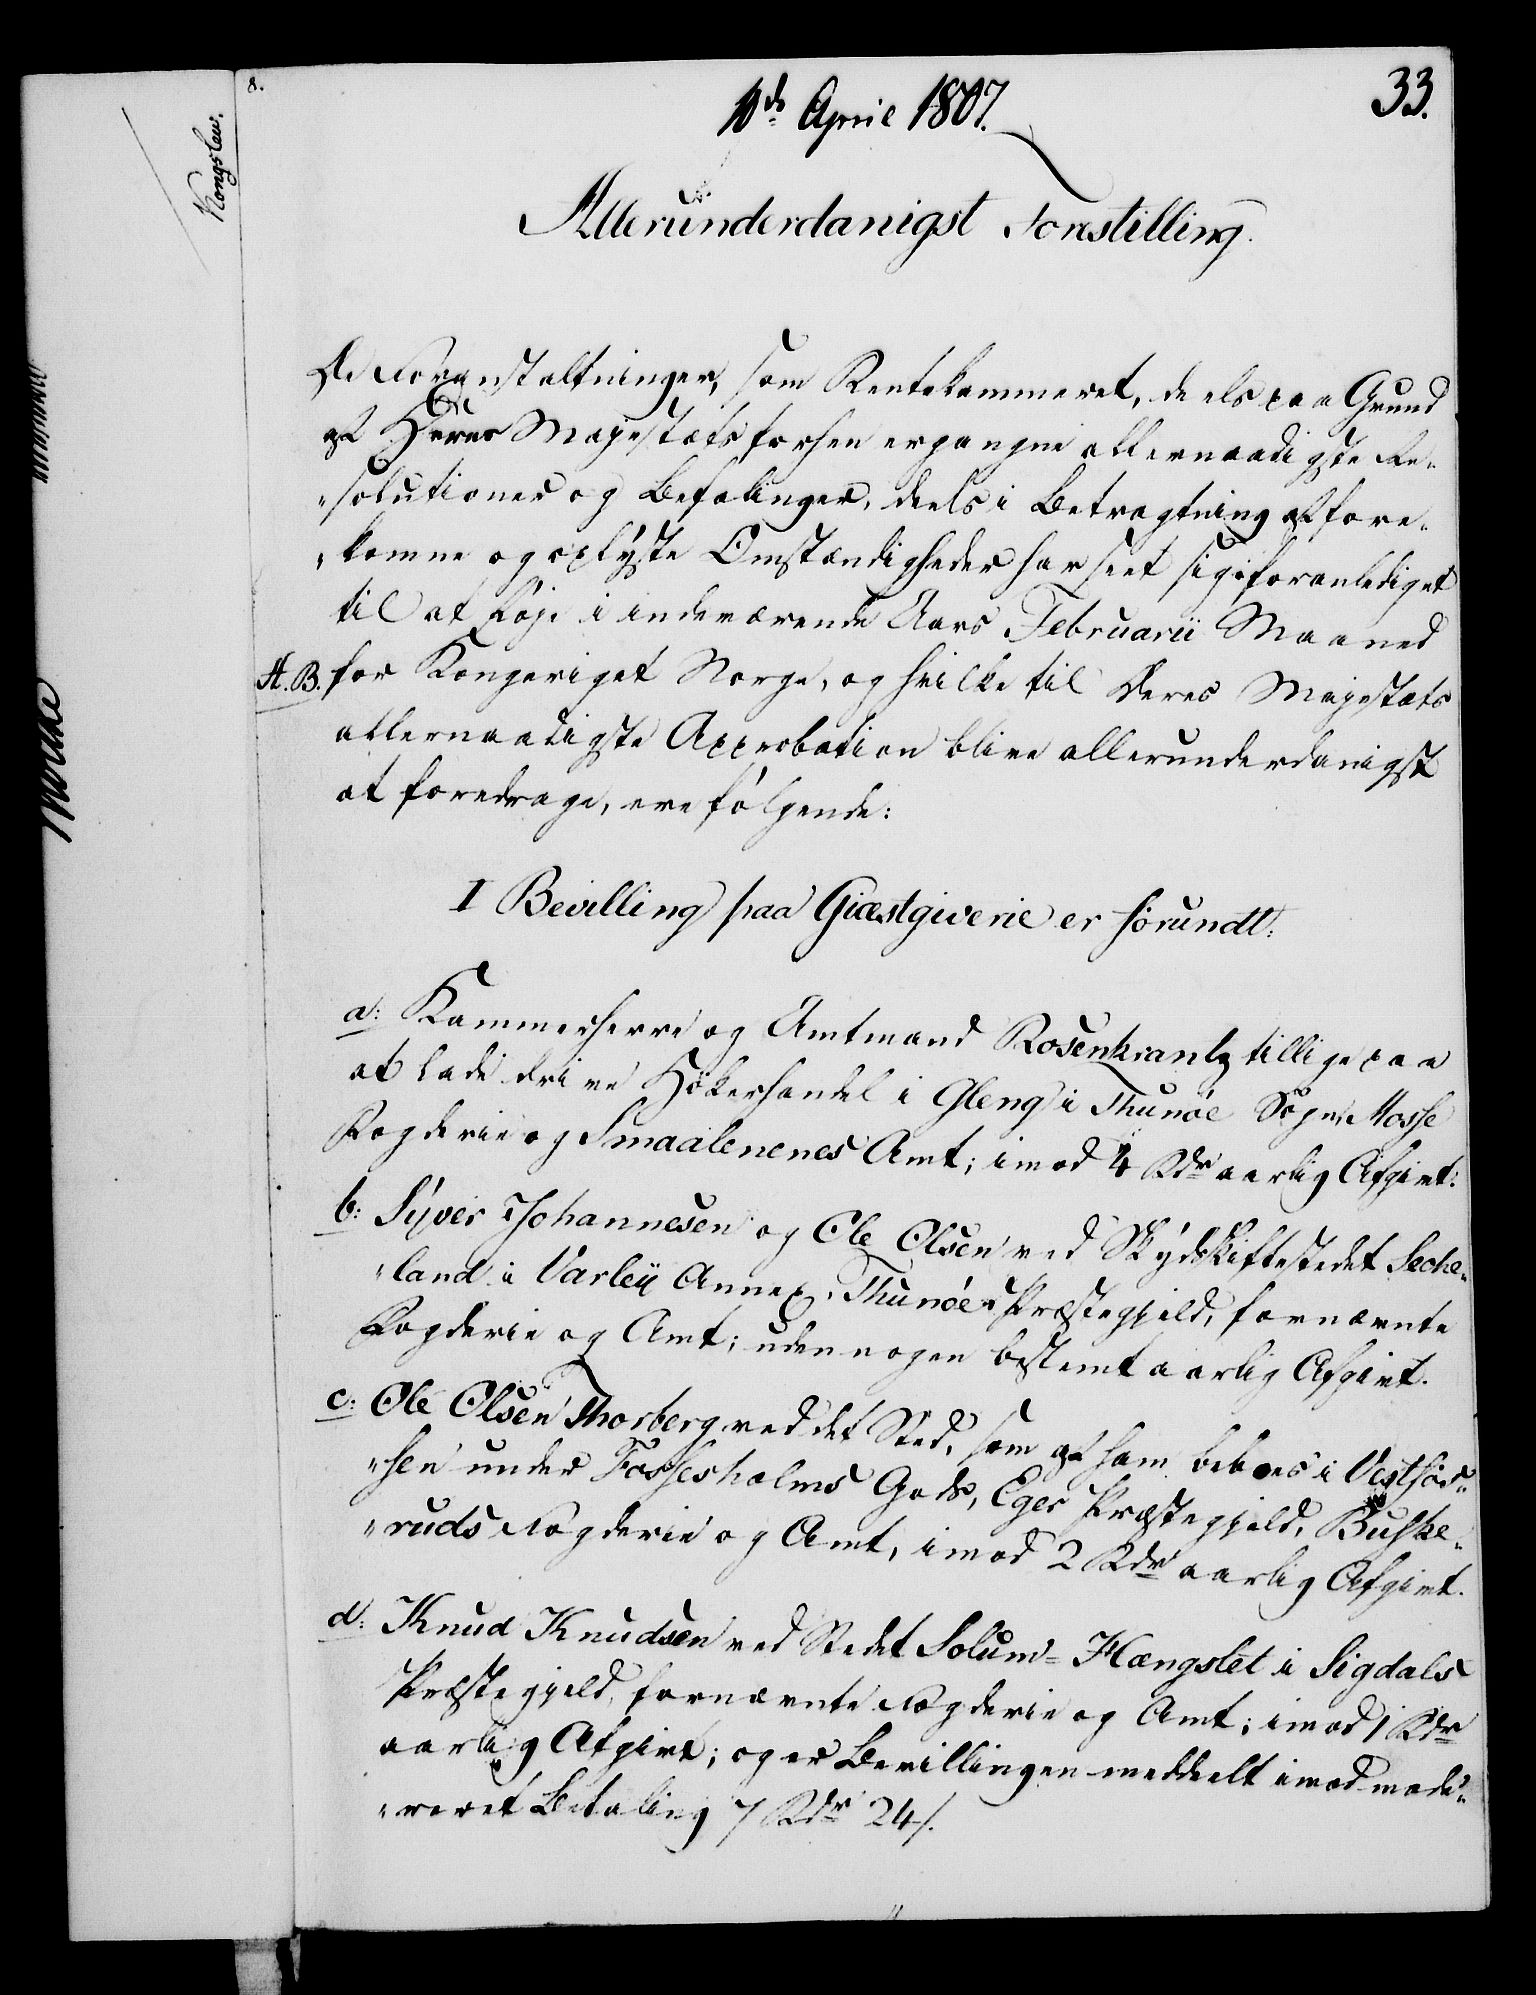 8.
33.
1ds April 1807.
Kongslew.
Allerunderdanigst Forestilling.
De Foranstaltninger, som Rentekammeret, deels paa Grund
af Deres Majestæts forhen ergangne allernaadigste Re-
"solutioner og Befalinger, deels i Betragtning af fore-
"komne og oplyste Omstændigheder har seet sig foranlediget
til at føje i indeværende Aars Februarii Maaned
A. B. for Kongeriget Norge, og hvilke til Deres Majestæts
allernaadigste Approbation blive allerunderdanigst
at foredrage, ere følgende:
I Bevilling paa Giæstgiverie er forundt:
a: Kammerherre og Amtmand Rosenkrantz tillige paa
at lade drive Høkerhandel i Gleng i Thunøe Sogn, Mosse
Fogderie og Smaalenenes Amt; imod 4 Rdr aarlig Afgivt.
b: Syver Johannesen og Ole Olsen ved Skydskiftestedet Seche-
"land i Varleÿ Annex, Thunøe Præstegjeld, fornævnte
Fogderie og Amt; uden nogen bestemt aarlig Afgivt.
c: Ole Olsen Thorberg ved det Sted, som af ham beboes i Vestfos-
"sen under Fossesholms Gods, Eger Præstegjeld, Buske-
"ruds Fogderie og Amt, imod 2 Rdr aarlig Afgivt.
d: Knud Knudsen ved Stedet Solum-Hængslet i Sigdals
Præstegjeld, fornævnte Fogderie og Amt; imod 1 Rdr
aarlig Afgivt; og er Bevillingen meddeelt imod mode-
"reret Betaling 7 Rdr 24 s.